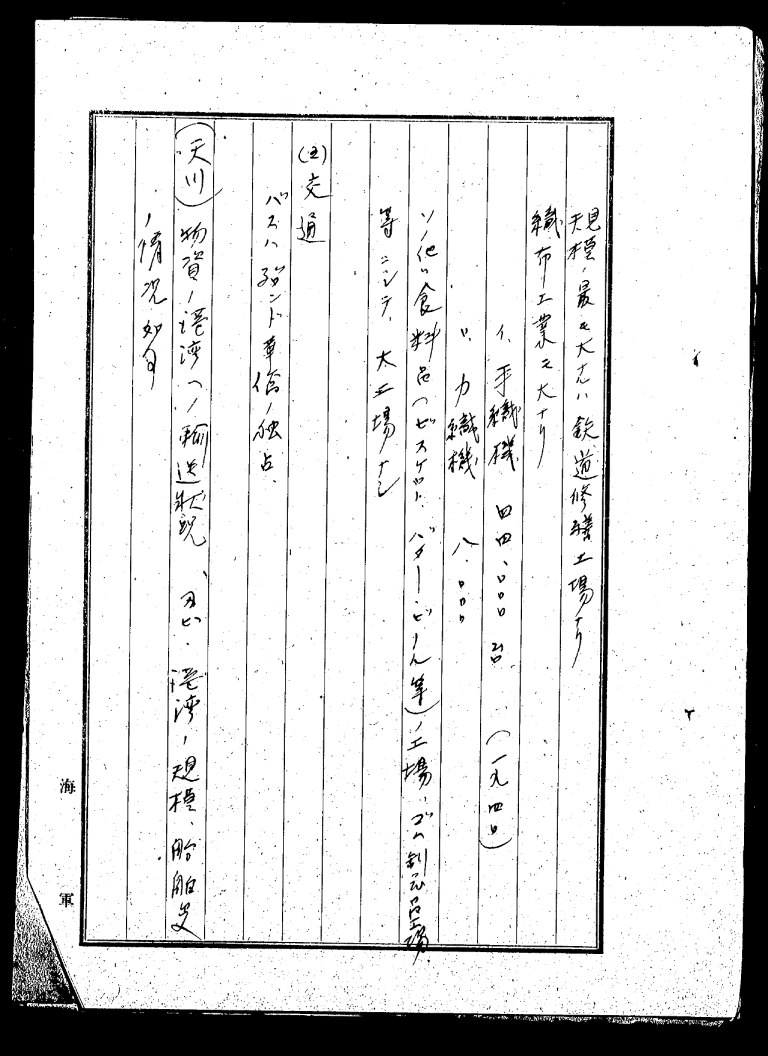 規模ノ最モ大ナルハ鉄道修繕工場ナリ
織布工業モ大ナリ
イ、手織機 四四、〇〇〇台 (一九四〇)
ロ、力織機 八、〇〇〇
ソノ他ハ食料品(ビスケット、バター、ビール等)ノ工場、ゴム製品工場
等ニシテ、大工場ナシ
交通
バスハ ノ独占、
(天川) 物資ノ港湾ヘノ輸送状況、及ビ、港湾ノ規模、船舶
ノ情況如何
海軍